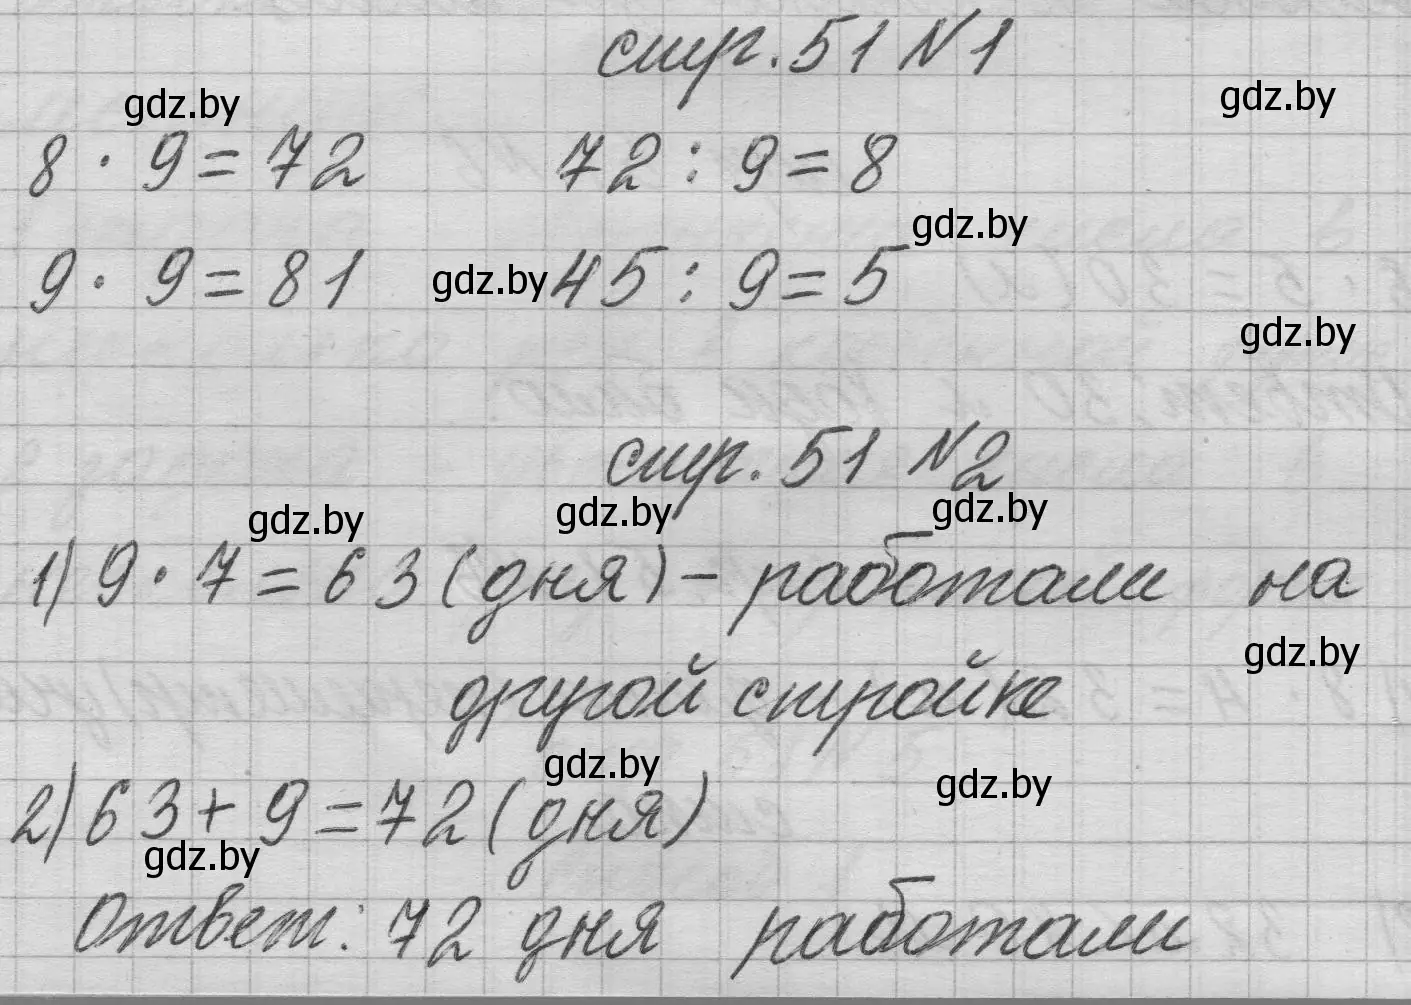 стр. 51 №1
gdz.by gdz.by
8 · 9 = 72 72 : 9 = 8
gdz.by
9 · 9 = 81 gdz.by 45 : 9 = 5
gdz.by
стр. 51 №2
gdz.by gdz.by gdz.by
1) 9 · 7 = 63 (дня) – работали на
gdz.by
другой стройке
gdz.by gdz.by
2) 63 + 9 = 72 (дня)
gdz.by
Ответ: 72 дня работали